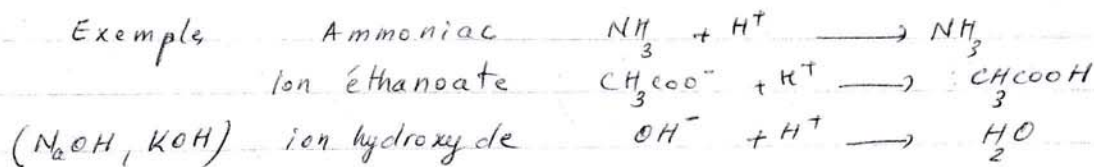 Exemple Ammoniac NH₃ + H⁺ → NH₃
Ion éthanoate CH₃COO⁻ + H⁺ → CH₃COOH
(NaOH, KOH) ion hydroxyde OH⁻ + H⁺ → H₂O